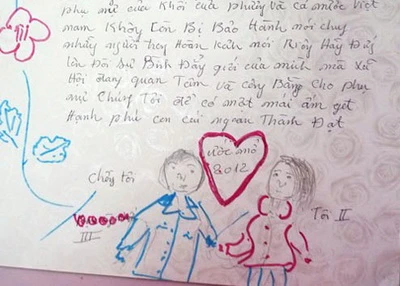 phụ nữ của Khôi của phường và cả nước Việt
nam Không Còn Bị Bảo Hành nói chung
những người hoàn cảnh nói Riêng Hãy Đứng
lên Đòi Sự Bình Đẳng giới của mình mà Xã
Hội đang quan Tâm và công Bằng Cho phụ
nữ Chúng Tôi để có mát mái ấm
Hạnh phúc con cái ngoan Thành Đạt
ước mơ
2012
Chồng tôi
Tôi II
III